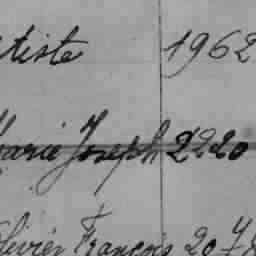 tiste 1962
Marie Joseph 2220
Olivier François 2048